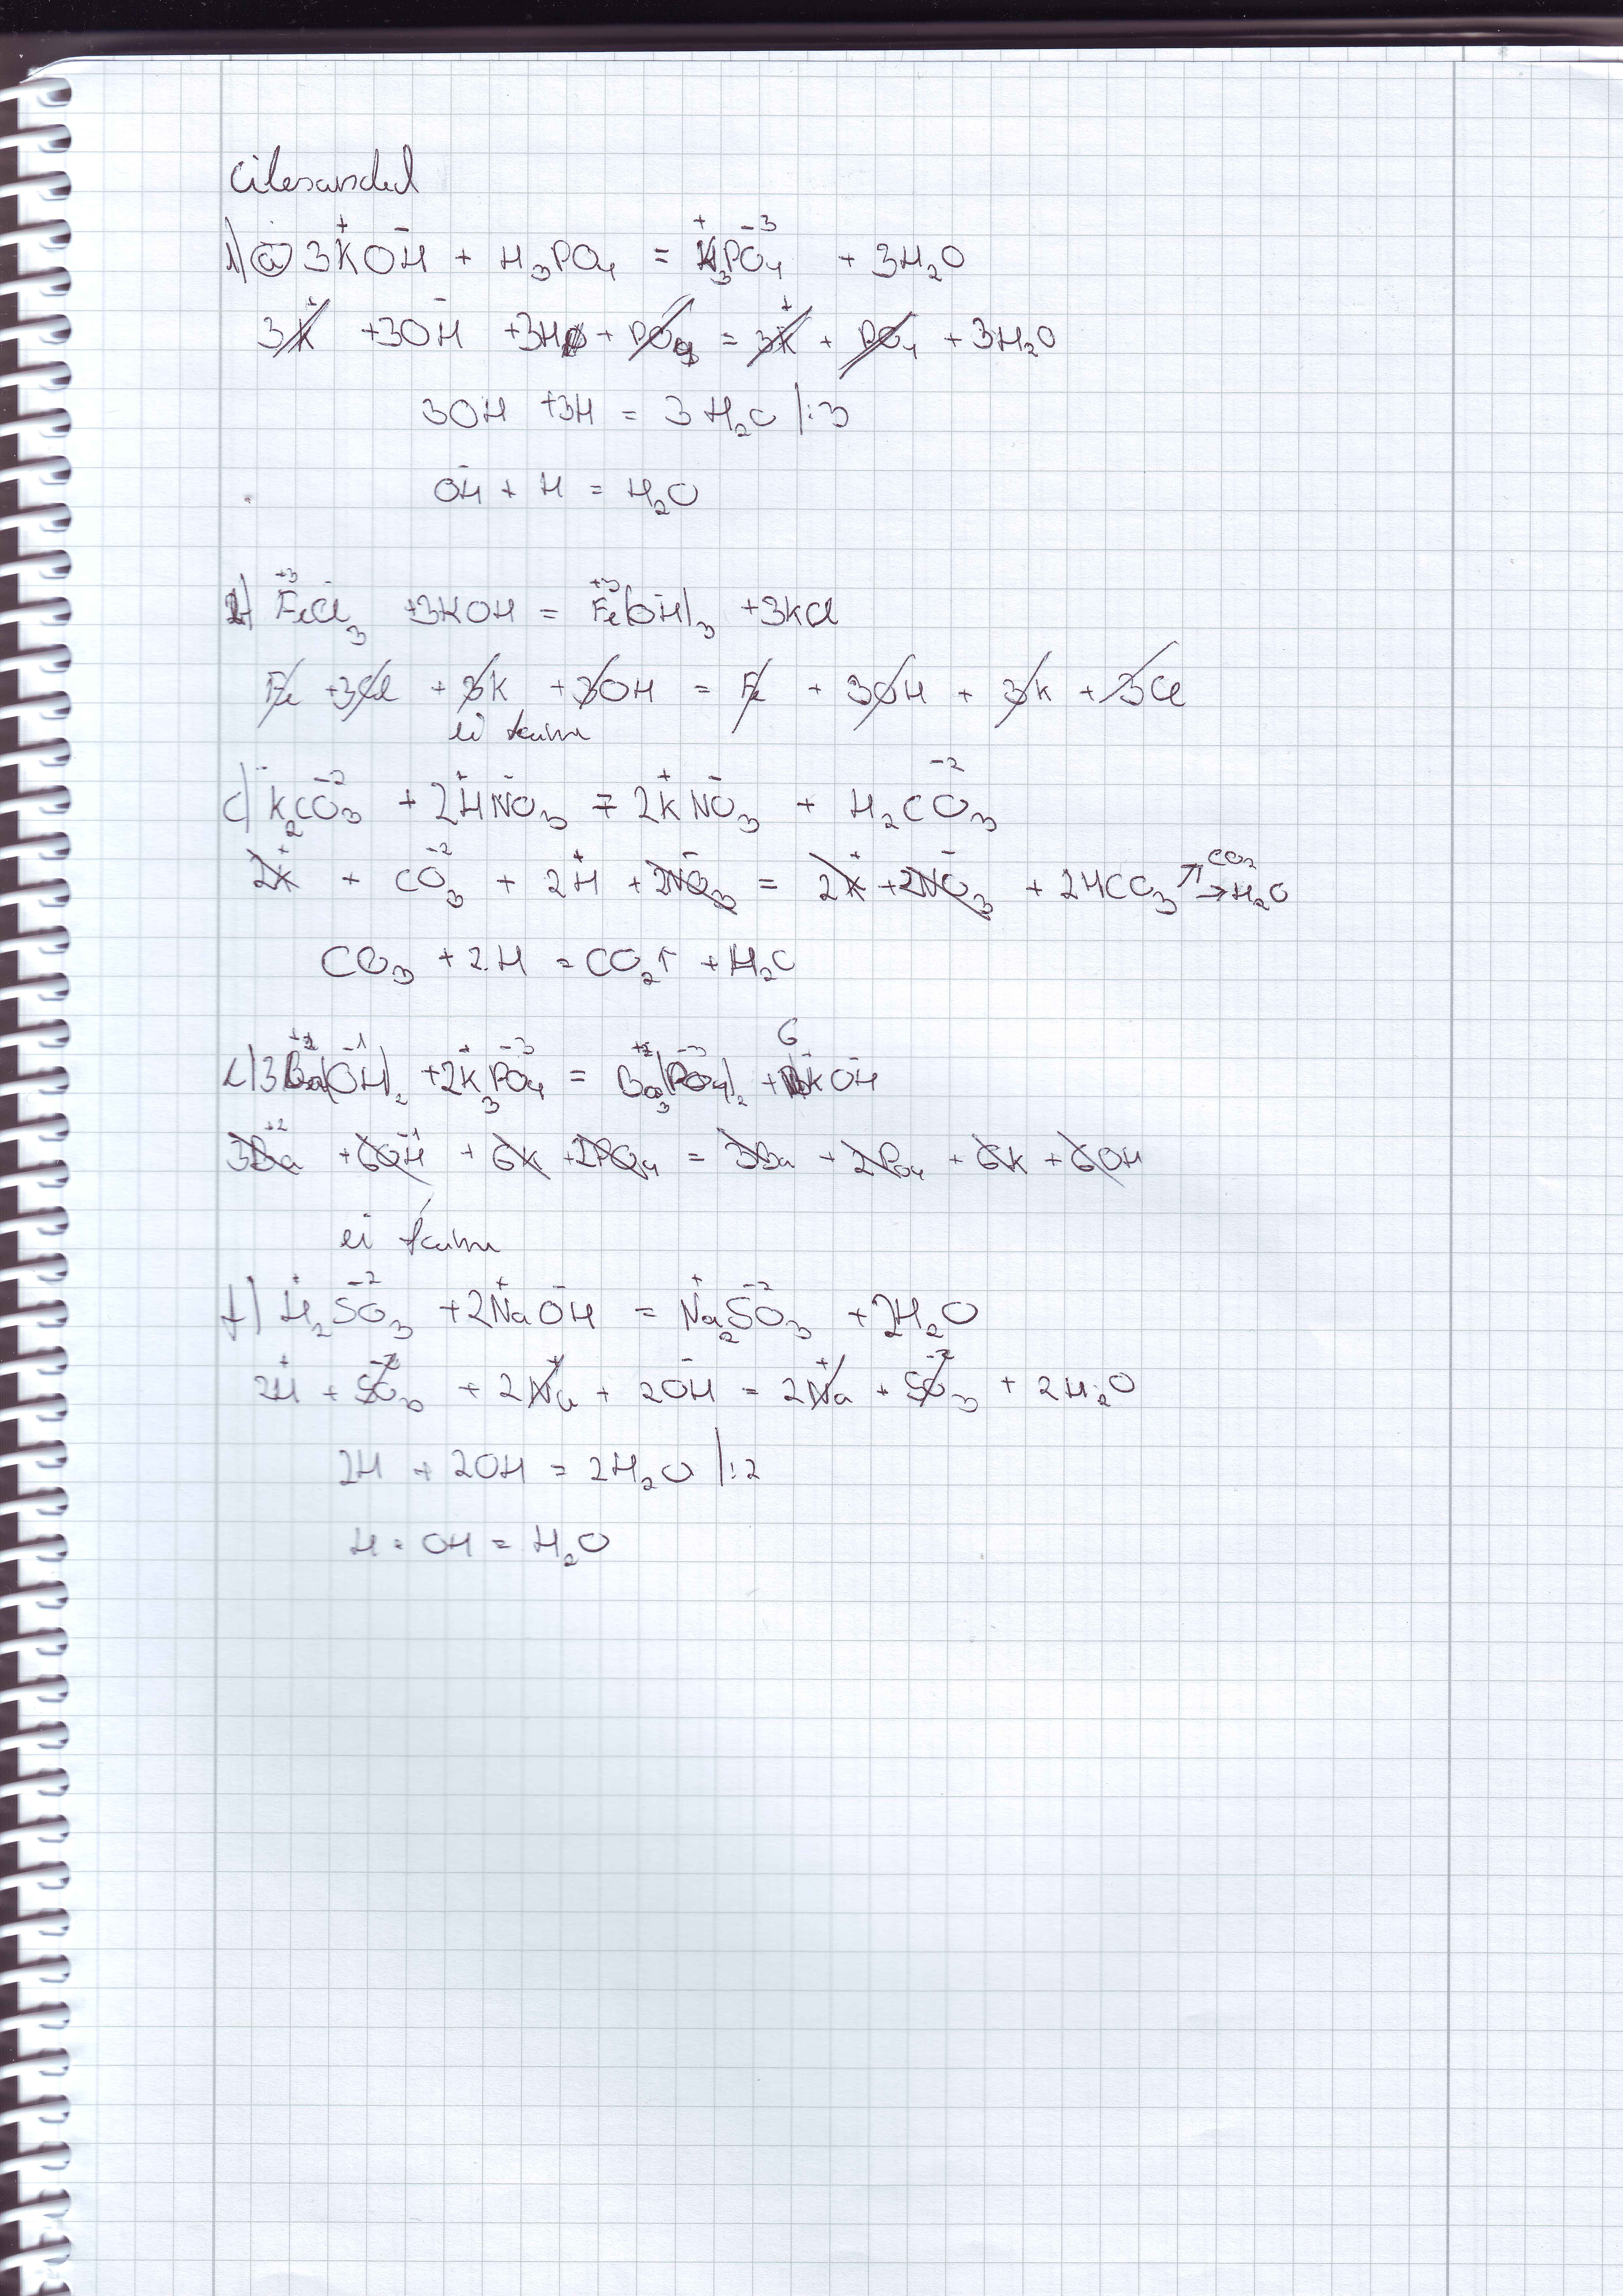 Ülesanded
1) a) 3K⁺OH⁻ + H₃PO₄ = K⁺₃PO₄⁻³ + 3H₂O
3K⁺ + 3OH⁻ + 3H + PO₄ = 3K⁺ + PO₄ + 3H₂O
3OH + 3H = 3H₂O |:3
OH⁻ + H = H₂O
Fe⁺³Cl⁻₃ + 3KOH = Fe⁺³(OH⁻)₃ + 3KCl
Fe + 3Cl + 3K + 3OH = Fe + 3OH + 3K + 3Cl
ei toimu
c) K₂CO₃⁻² + 2H⁺NO₃⁻ = 2K⁺NO₃⁻ + H₂CO₃⁻²
2K⁺ + CO₃⁻² + 2H⁺ + 2NO₃⁻ = 2K⁺ + 2NO₃⁻ + 2HCO₃ ↗CO₂ →H₂O
CO₃ + 2H = CO₂↑ + H₂O
3Ba⁺²(OH⁻¹)₂ + 2K⁺₃PO₄⁻³ = Ba⁺²₃(PO₄⁻³)₂ + 6KOH⁻
3Ba⁺² + 6OH⁻¹ + 6K + 2PO₄ = 3Ba + 2PO₄ + 6K + 6OH
ei toimu
f) H⁺₂SO₃⁻² + 2Na⁺OH⁻ = Na⁺₂SO₃⁻² + 2H₂O
2H⁺ + SO₃⁻² + 2Na⁺ + 2OH⁻ = 2Na⁺ + SO₃⁻² + 2H₂O
2H + 2OH = 2H₂O |:2
H = OH = H₂O